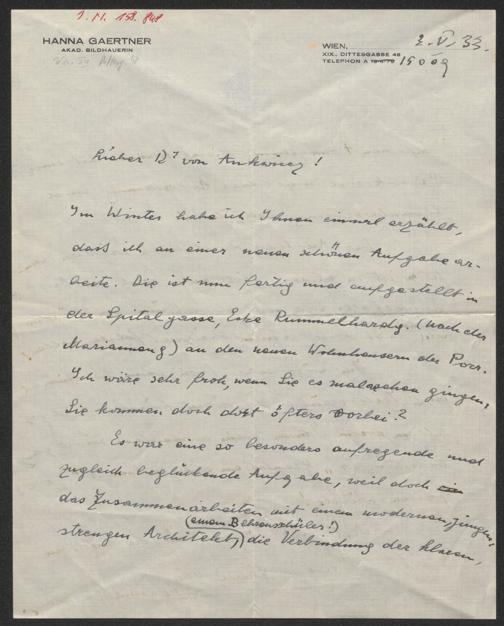 I. N. 158.848
HANNA GAERTNER
AKAD. BILDHAUERIN
WIEN, 2. V. 33.
XIX., DITTESGASSE 48
TELEPHON A 15009
Lieber Dr von Ankwicz!
Im Winter habe ich Ihnen einmal erzählt,
dass ich an einer neuen schönen Aufgabe ar-
beite. Die ist nun fertig und aufgestellt in
der Spitalgasse, Ecke Rummelhardtg. (nach der
Marianneng) an den neuen Wohnhäusern der Porr.
Ich wäre sehr froh, wenn Sie es malaschen gingen,
Sie kommen doch dort öfters vorbei?
Es war eine so besonders aufregende und
zugleich beglückende Aufgabe, weil doch
das Zusammenarbeiten mit einem modernen, jungen,
(einem Behrensschüler!)
strengen Architekt, die Verbindung der klaren,